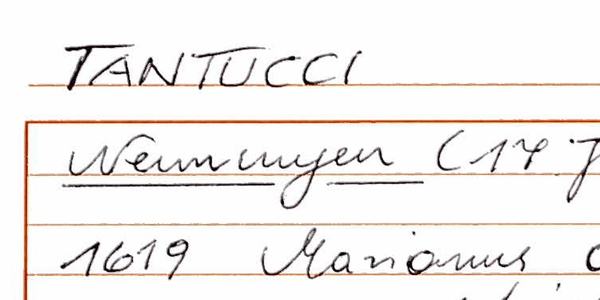 TANTUCCI
Nennungen (17 J
1619 Marianus